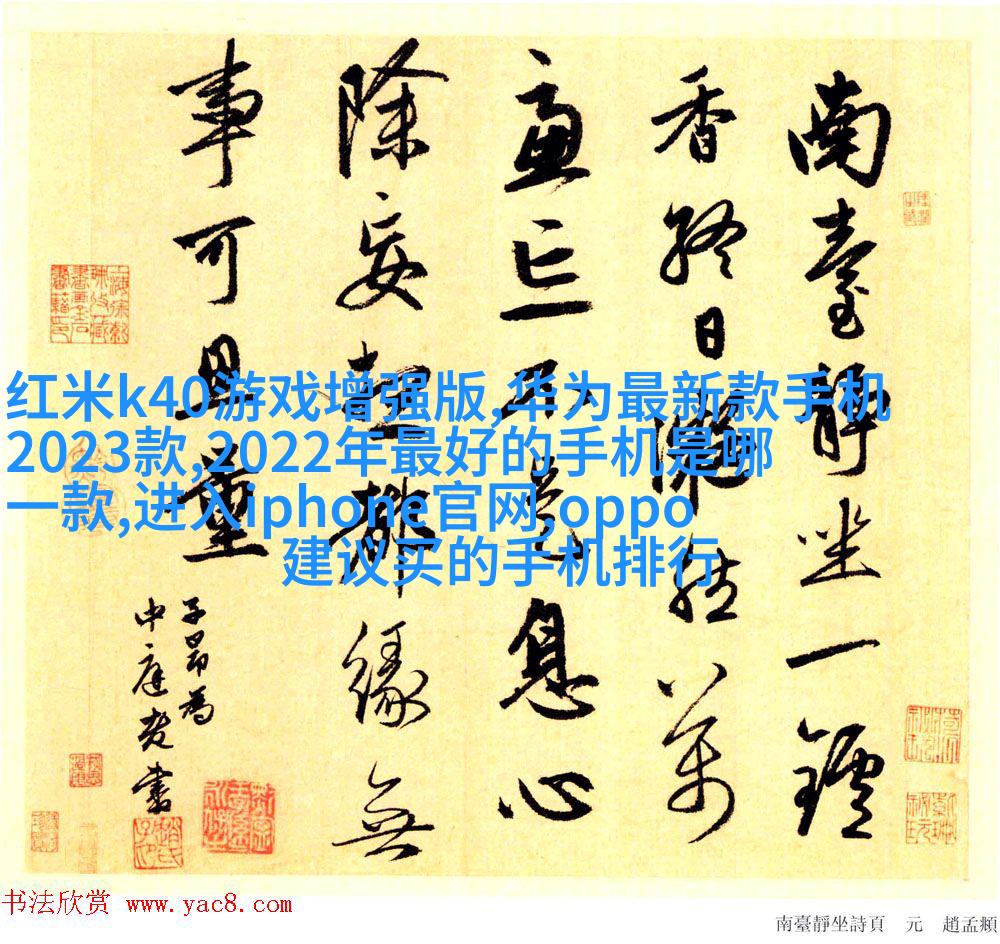 南臺靜坐一鑪
香終日凝然萬
慮亡不是息心
除妄想都緣無
事可思量
子昂為
中庭書
红米k40游戏增强版,华为最新款手机
2023款,2022年最好的手机是哪
一款,进入iphone官网,oppo
建议买的手机排行
书法欣赏 www.yac8.com
南臺靜坐詩頁 元 趙孟頫